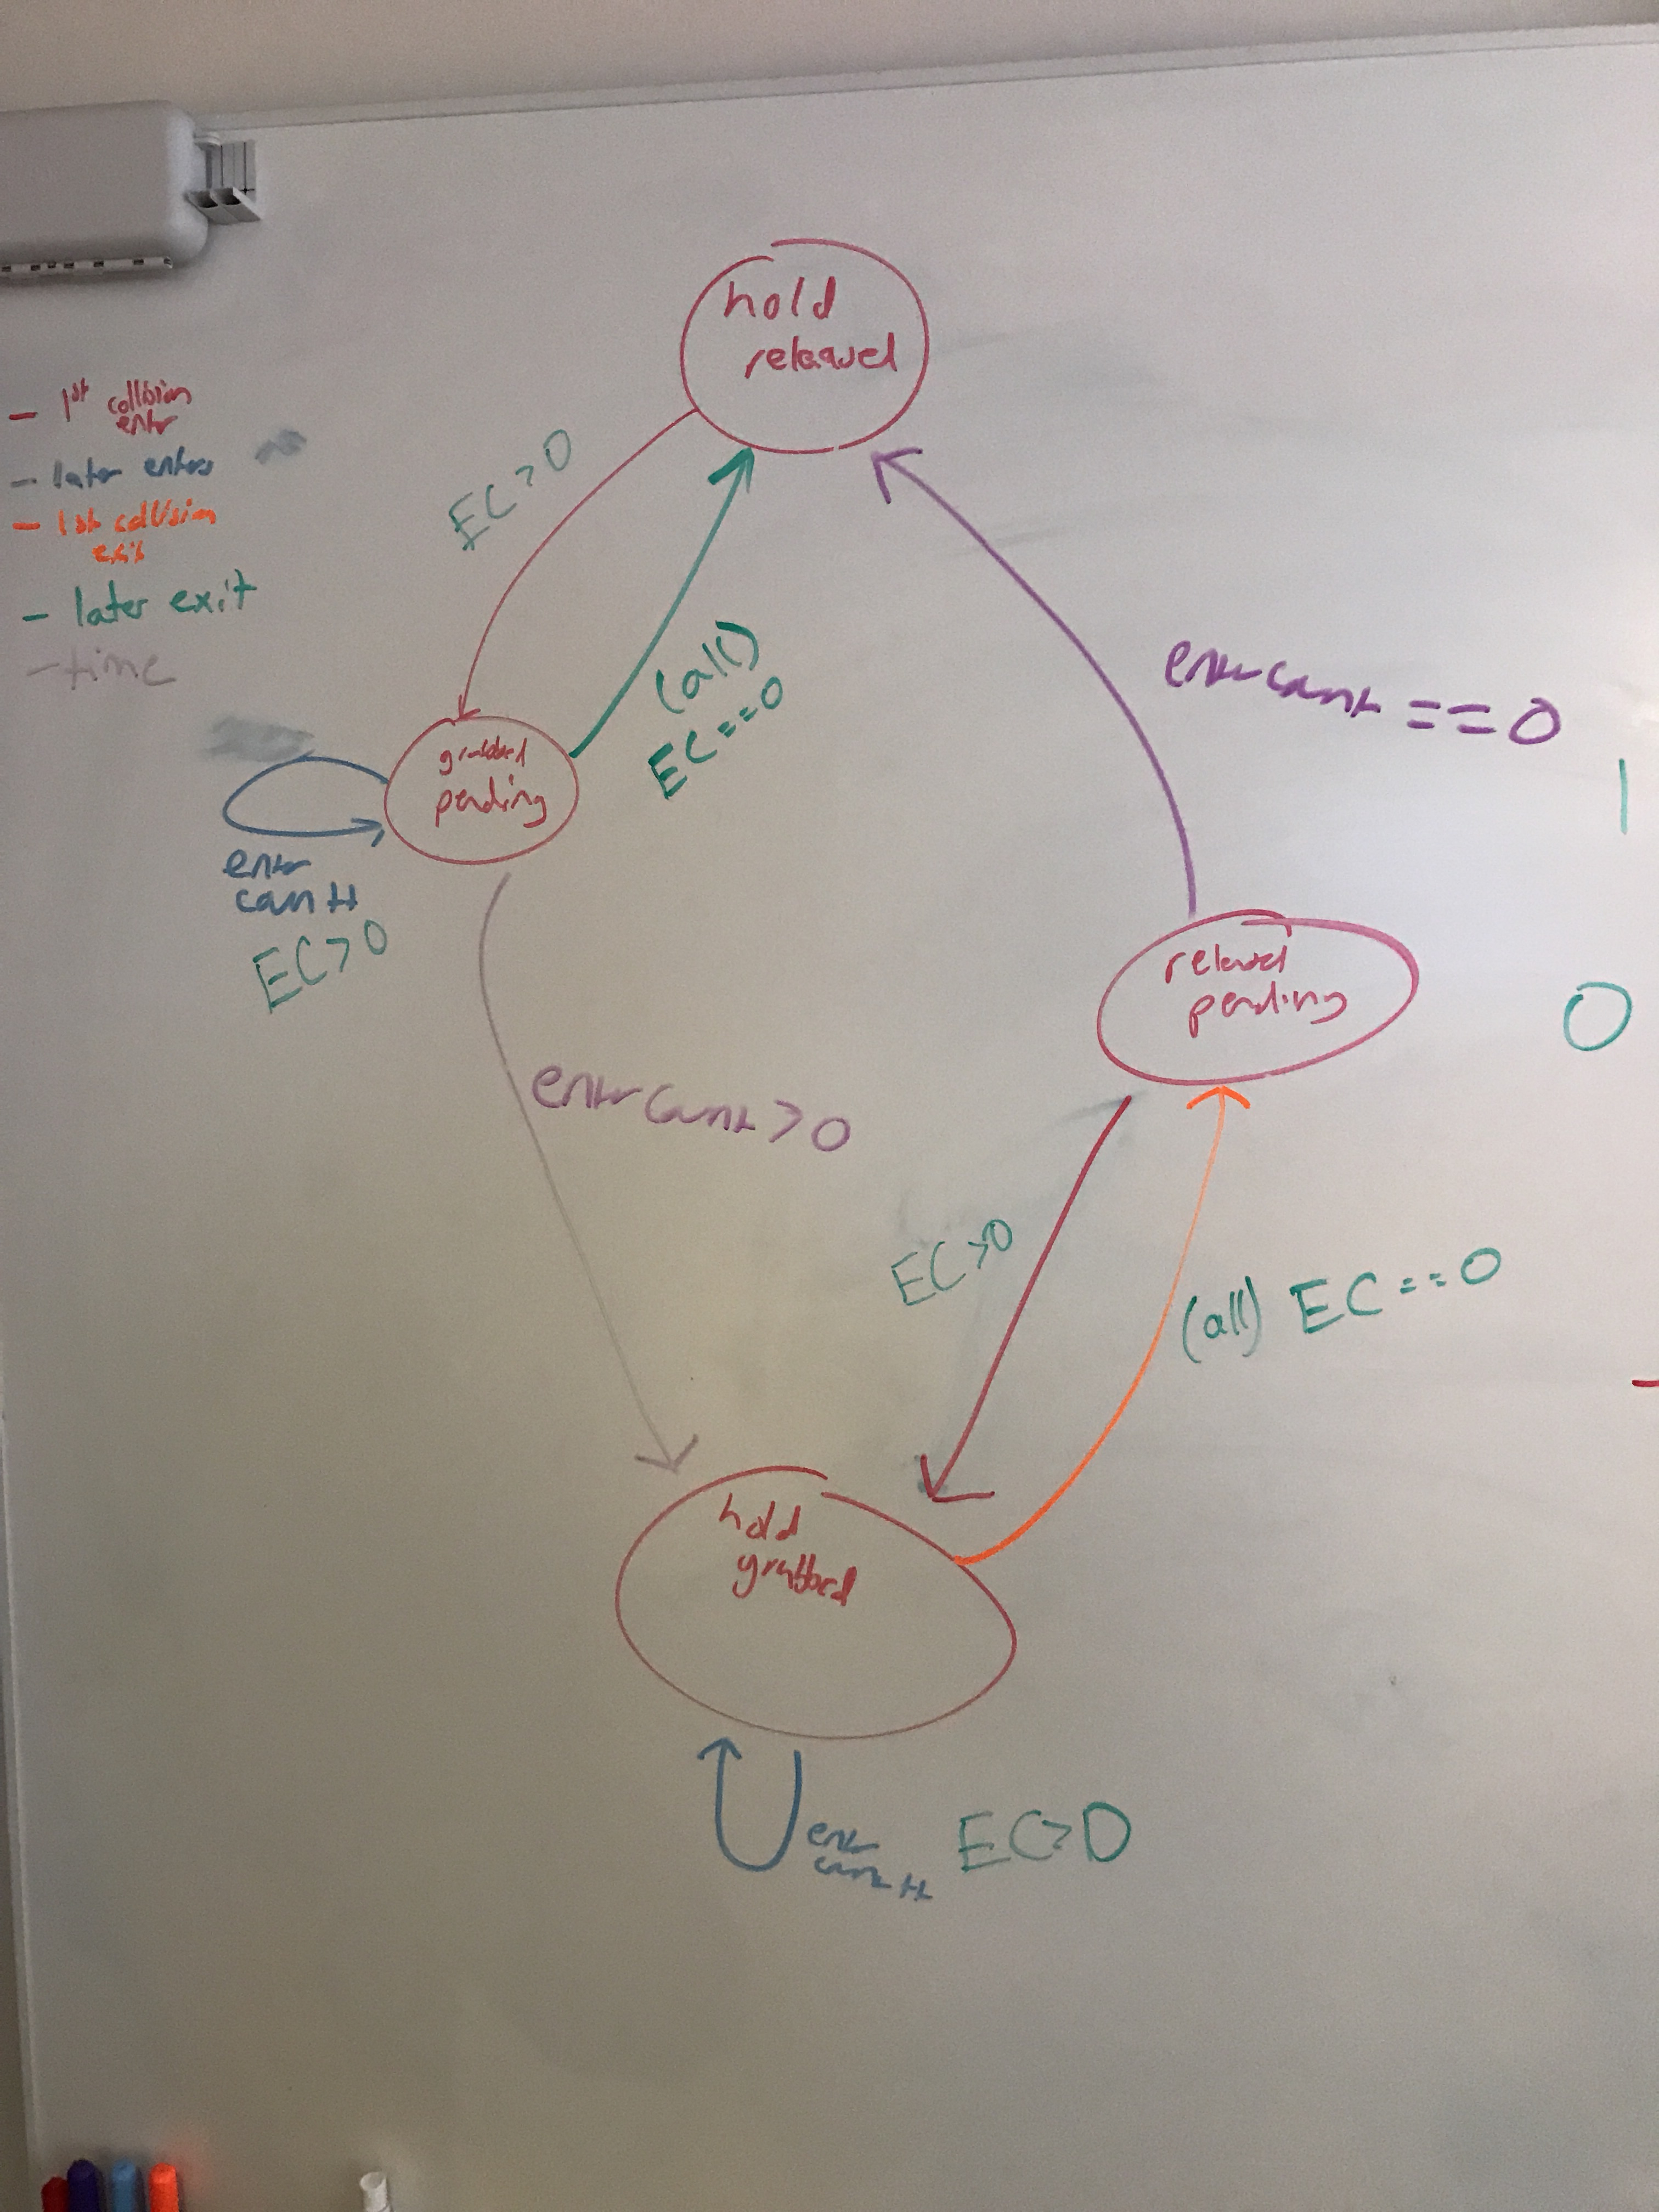 hold
released
- 1st collision
enter
- later enters
- 1st collision
exit
- later exit
- time
EC>0
(all)
EC==0
grabbed
pending
enter
count
EC>0
enter count == 0
1
released
pending
0
enter count > 0
EC>0
(all) EC==0
hold
grabbed
enter
count
EC>0